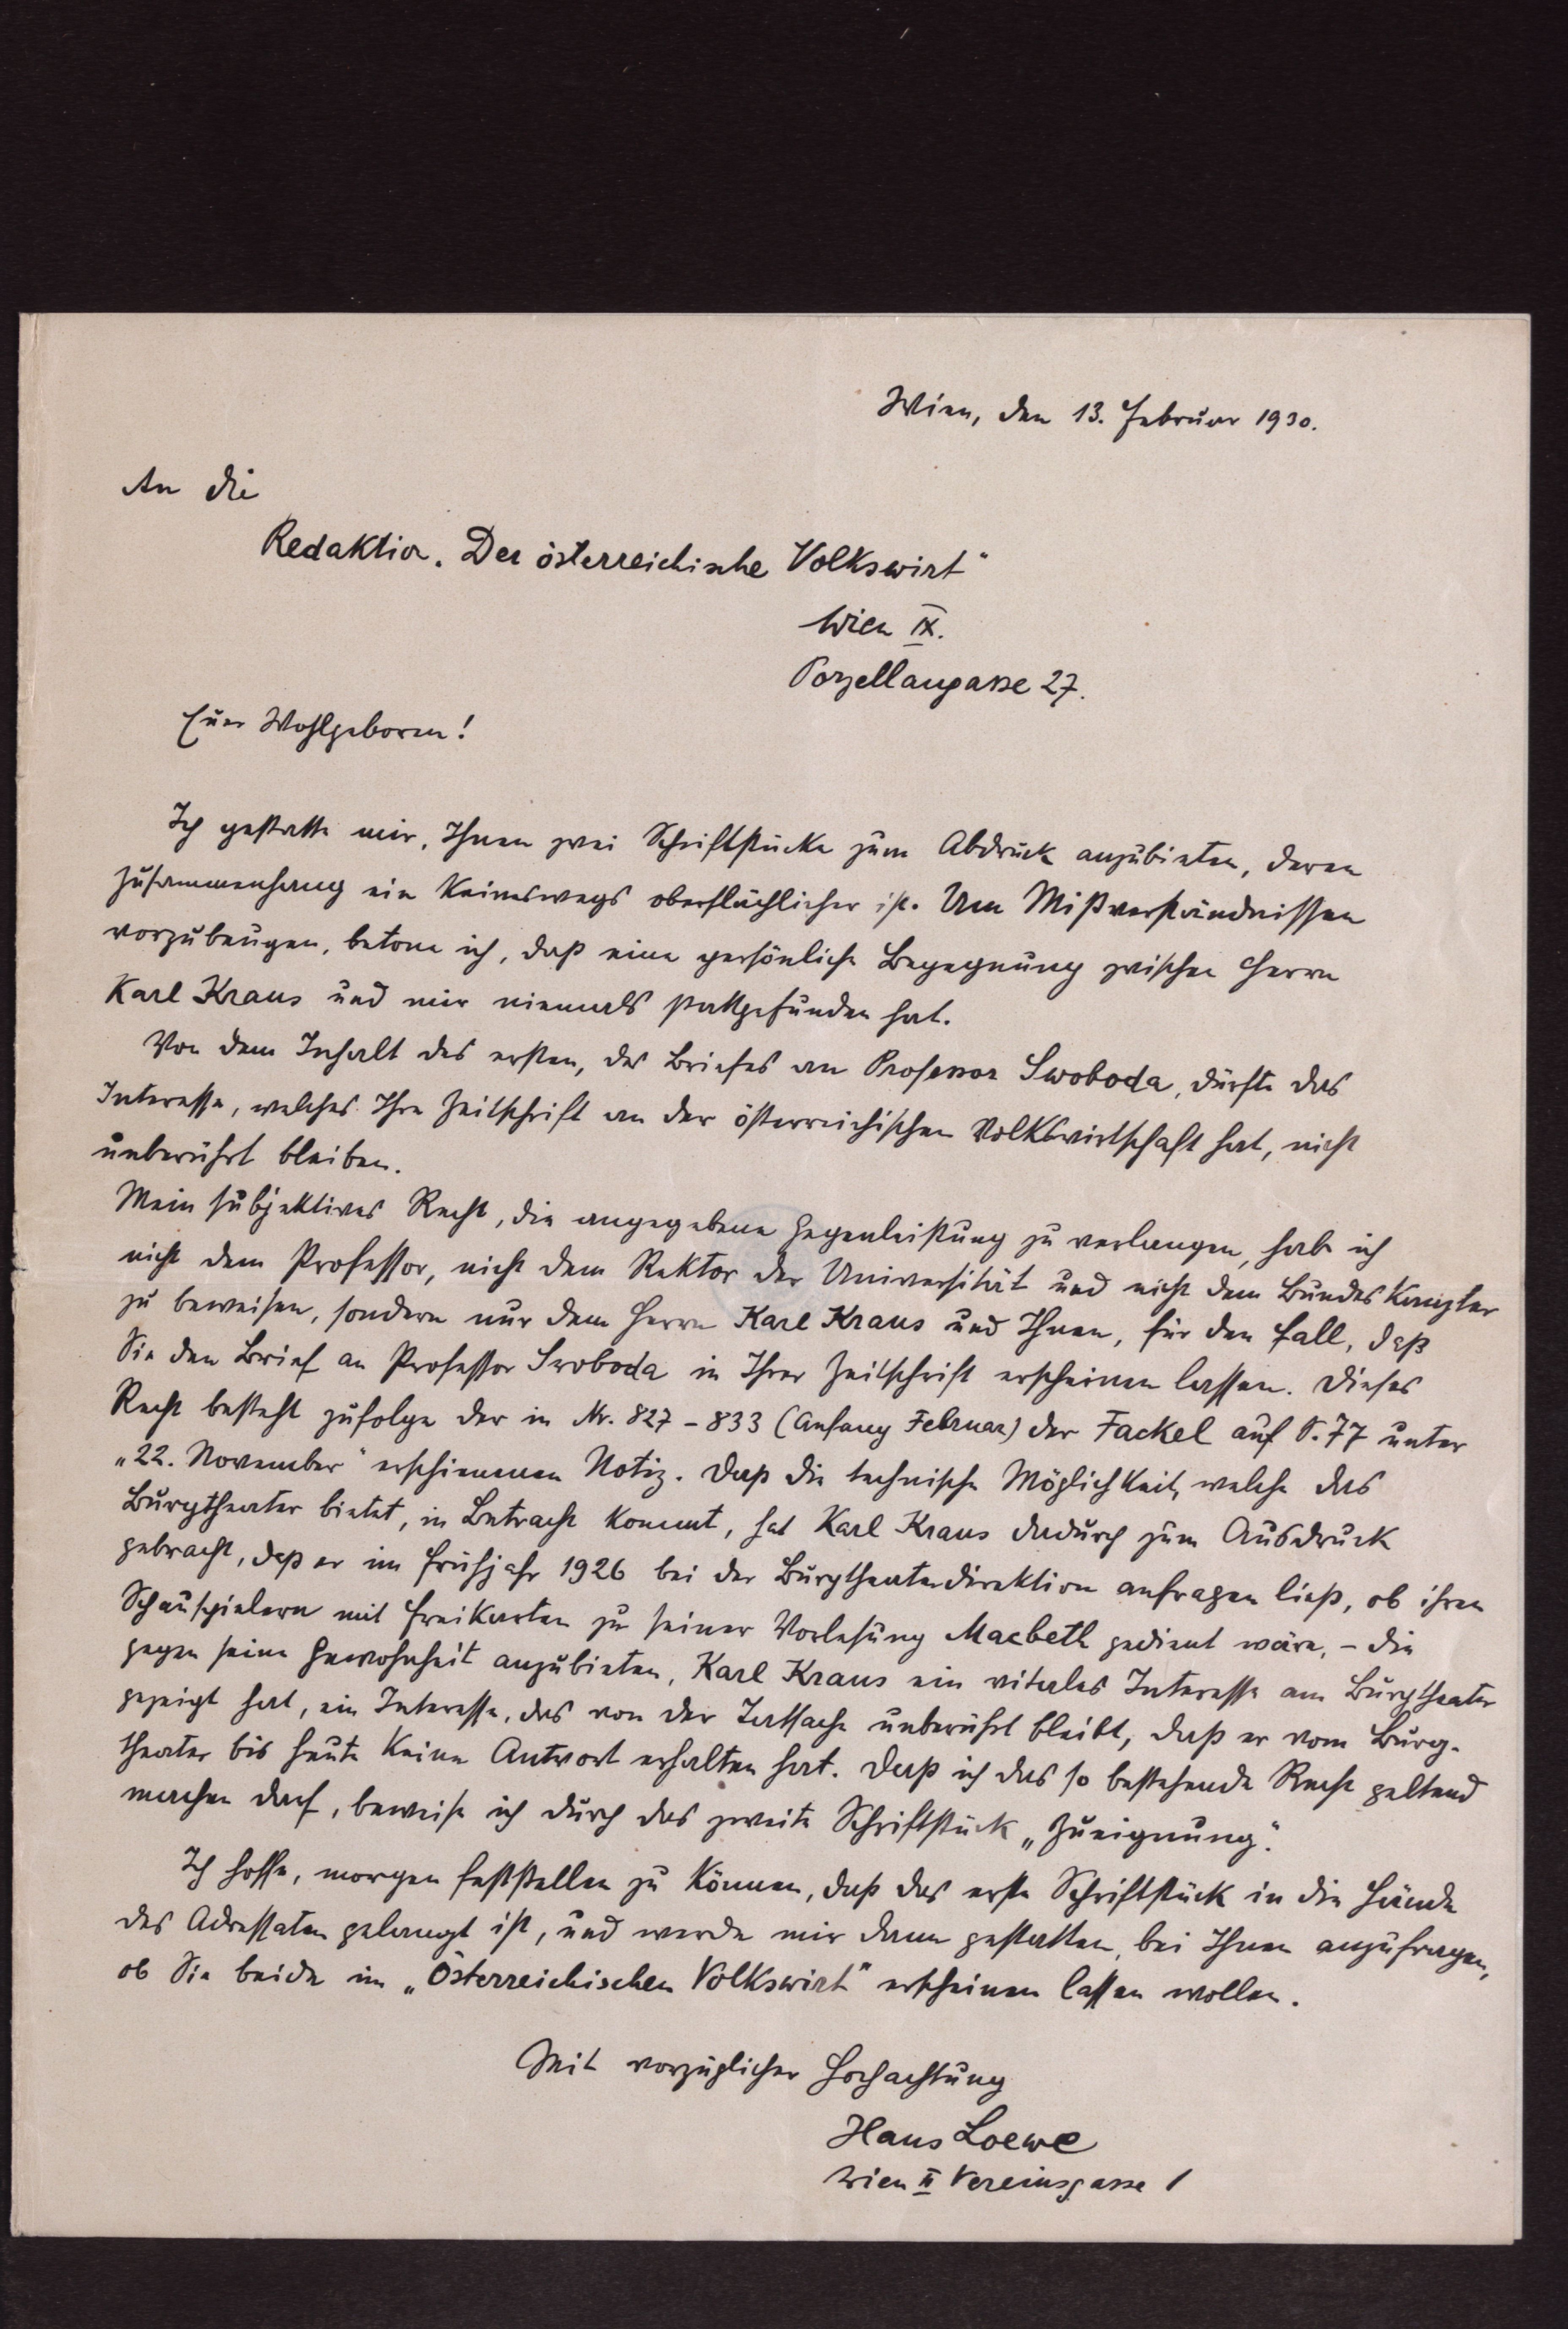 Wien, den 13. Februar 1930.
An die
Redaktion „Der österreichische Volkswirt“
Wien IX.
Porzellangasse 27.
Euer Wohlgeboren!
Ich gestatte mir, Ihnen zwei Schriftstücke zum Abdruck anzubieten, deren
Zusammenhang ein keineswegs oberflächlicher ist. Um Mißverständnissen
vorzubeugen, betone ich, daß eine persönliche Begegnung zwischen Herrn
Karl Kraus und mir niemals stattgefunden hat.
Von dem Inhalt des ersten, des Briefes an Professor Swoboda, dürfte das
Interesse, welches Ihre Zeitschrift an der österreichischen Volkswirtschaft hat, nicht
unberührt bleiben.
Mein subjektives Recht, die angegebene Gegenleistung zu verlangen, habe ich
nicht dem Professor, nicht dem Rektor der Universität und nicht dem Bundeskanzler
zu beweisen, sondern nur dem Herrn Karl Kraus und Ihnen, für den Fall, daß
Sie den Brief an Professor Swoboda in Ihrer Zeitschrift erscheinen lassen. Dieses
Recht besteht zufolge der in Nr. 827 – 833 (Anfang Februar) der Fackel auf S. 77 unter
„22. November“ erschienenen Notiz. Daß die technische Möglichkeit, welche das
Burgtheater bietet, in Betracht kommt, hat Karl Kraus dadurch zum Ausdruck
gebracht, daß er im Frühjahr 1926 bei der Burgtheaterdirektion anfragen ließ, ob ihren
Schauspielern mit Freikarten zu seiner Vorlesung Macbeth gedient wäre, – die
gegen seine Gewohnheit anzubieten, Karl Kraus ein vitales Interesse am Burgtheater
gezeigt hat, ein Interesse, das von der Tatsache unberührt bleibt, daß er vom Burg-
theater bis heute keine Antwort erhalten hat. Daß ich das so bestehende Recht geltend
machen darf, beweise ich durch das zweite Schriftstück „Zueignung“.
Ich hoffe, morgen feststellen zu können, daß das erste Schriftstück in die Hände
des Adressaten gelangt ist, und werde mir dann gestatten, bei Ihnen anzufragen,
ob Sie beide im „Österreichischen Volkswirt“ erscheinen lassen wollen.
Mit vorzüglicher Hochachtung
Hans Loewe
Wien II Vereinsgasse 1